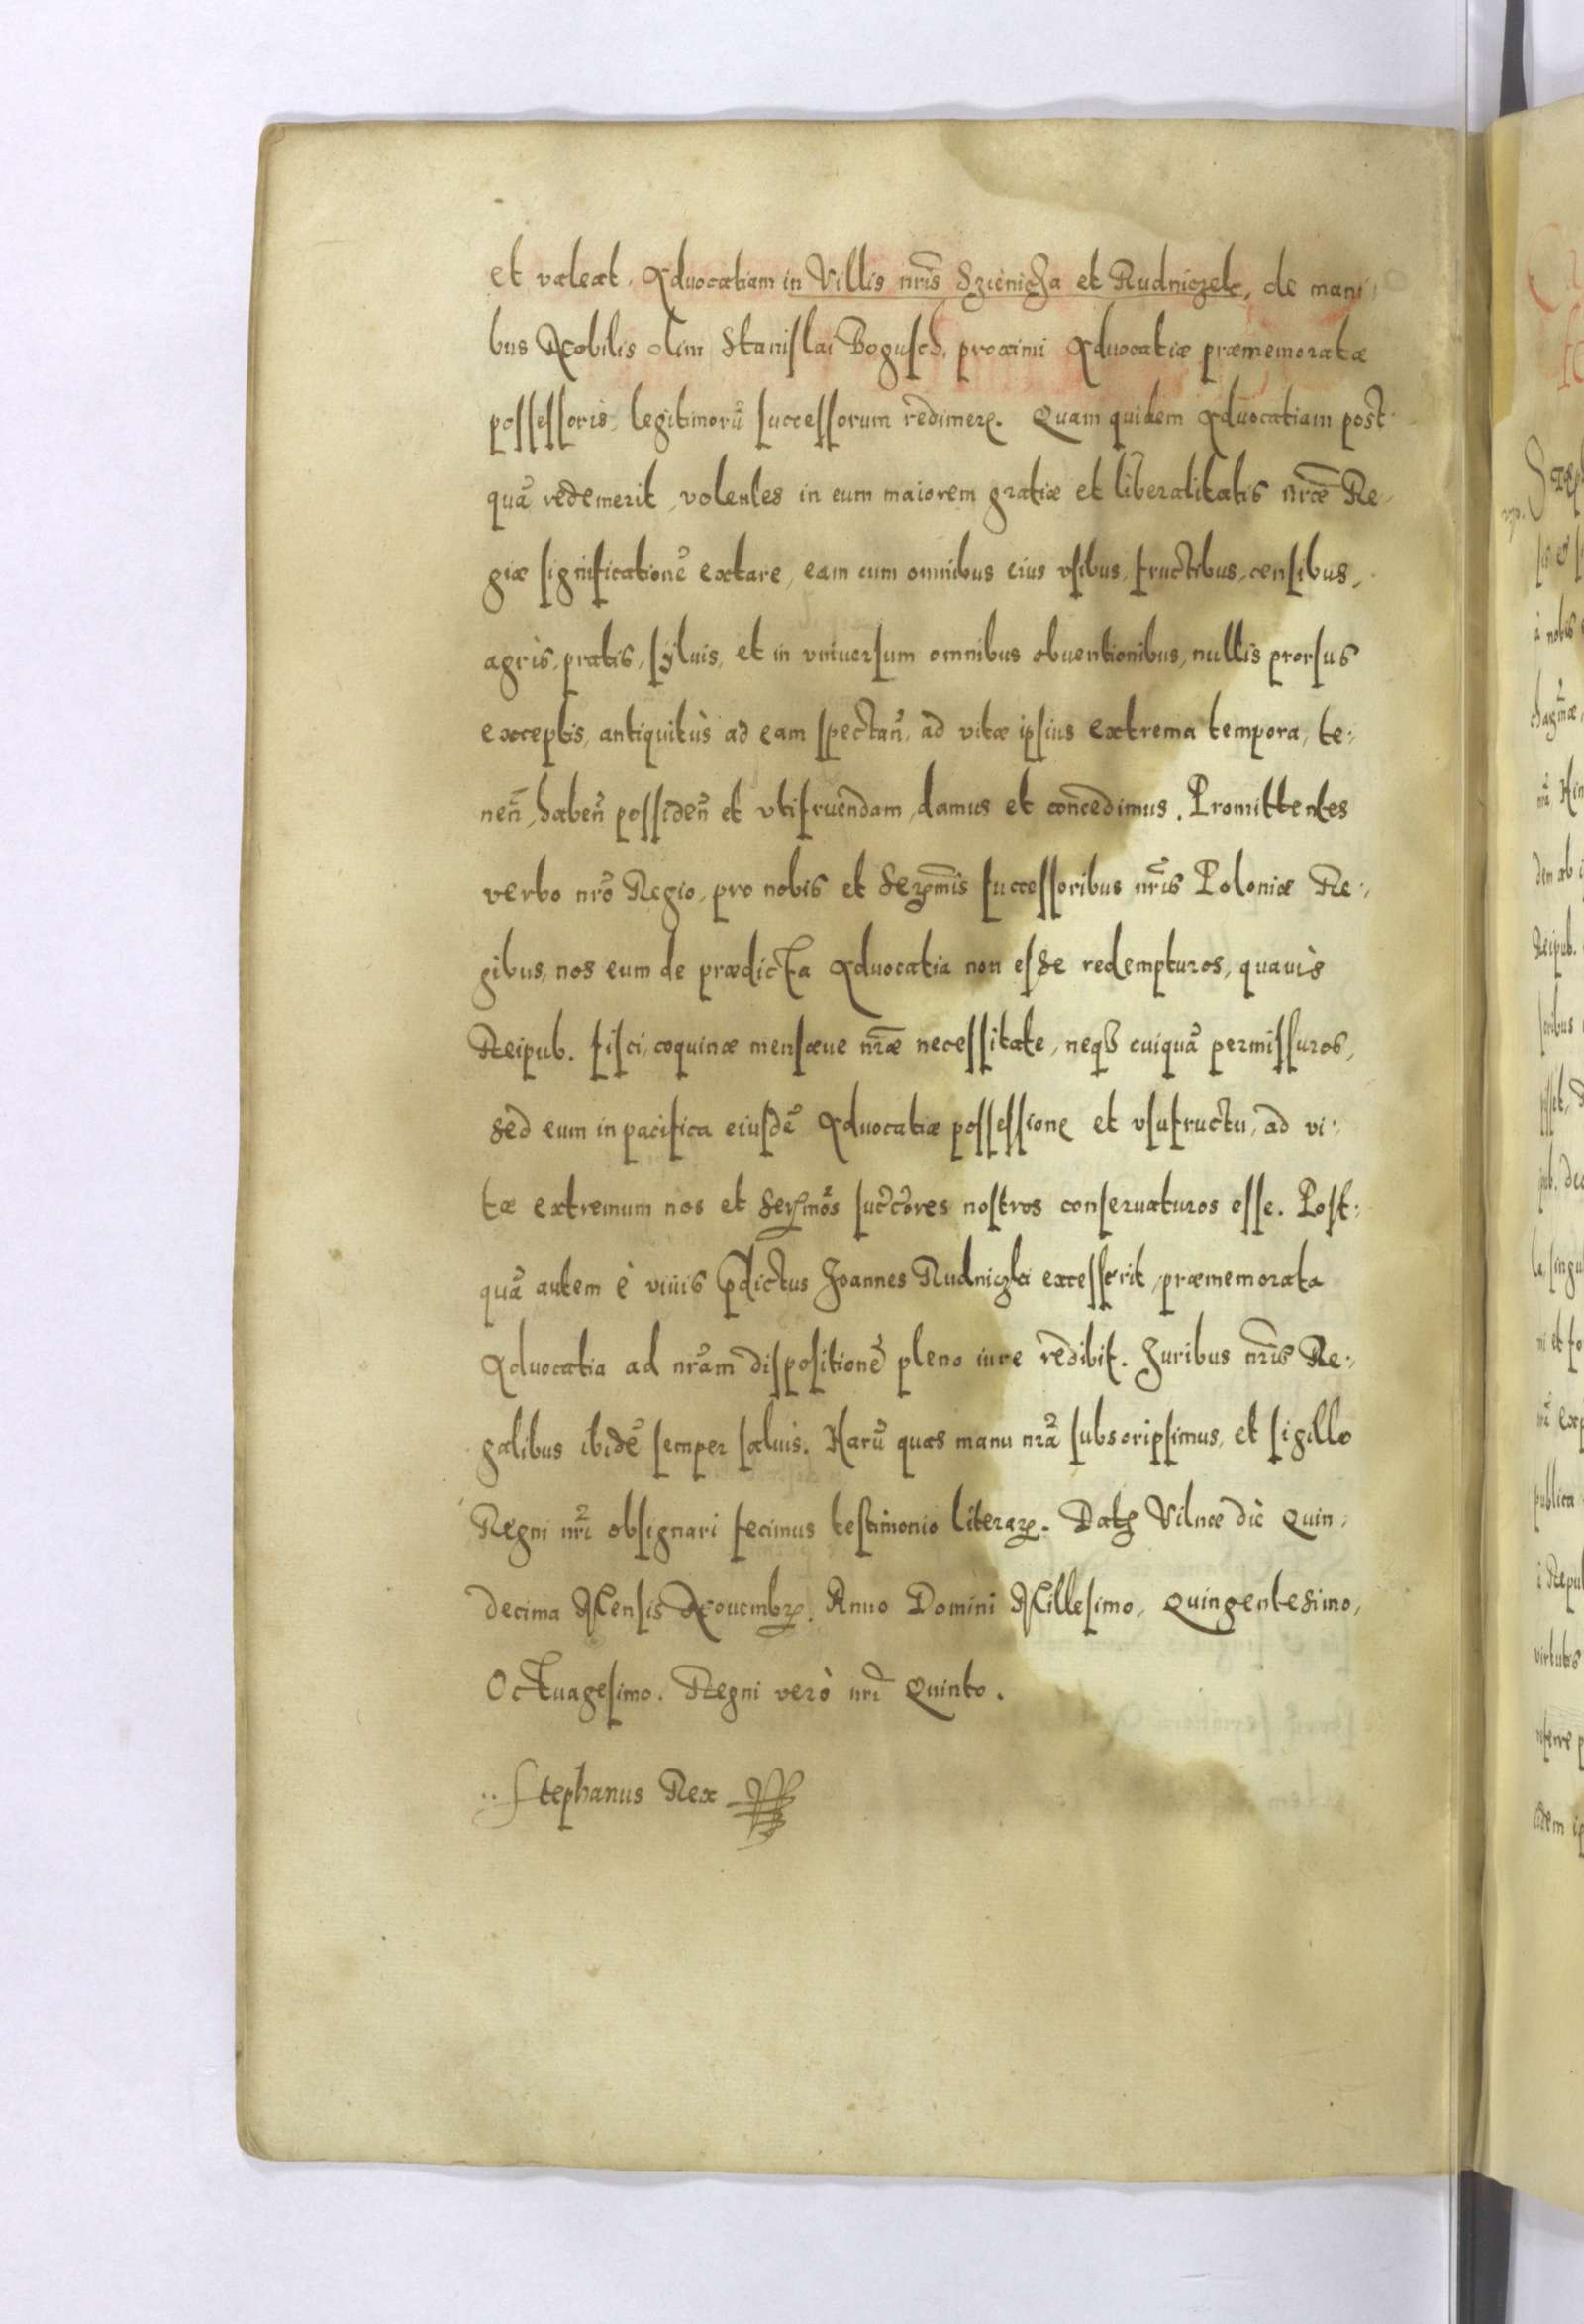 et valeat, Advocatiam in Villis nr̃is Szienicza et Rudniczek, de mani
bus Nobilis olim Stanislai Bogusch, proximi Advocatiæ præmemoratæ
possessoris, legitimorũ successorum redimere. Quam quidem Advocatiam post
quã redemerit, volentes in eum maiorem gratiæ et liberalitatis nr̃æ Re-
giæ significationẽ extare, eam cum omnibus eius vsibus, fructibus, censibus,
agris, pratis, syluis, et in vniuersum omnibus obuentionibus, nullis prorsus
exceptis, antiquitùs ad eam spectañ, ad vitæ ipsius extrema tempora, te-
neñ, habeñ possideñ et vtifruendam, damus et concedimus. Promittentes
verbo nr̃o Regio, pro nobis et Serẽmis successoribus nr̃is Poloniæ Re-
gibus, nos eum de prædicta Advocatia non esse redempturos, quauis
Reipub. fisci, coquinæ mensæue nr̃æ necessitate, neqȝ cuiquã permissuros,
sed eum in pacifica eiusdẽ Advocatiæ possessione et vsufructu, ad vi-
tæ extremum nos et Serẽmos succ̃ores nostros conseruaturos esse. Post-
quã autem è viuis p̃dictus Joannes Rudniczki excesserit, præmemorata
Advocatia ad nr̃am dispositionẽ pleno iure redibit. Juribus nr̃is Re-
galibus ibidẽ semper saluis. Harũ quas manu nr̃a subscripsimus, et sigillo
Regni nr̃i obsignari fecimus testimonio literaꝝ. Datꝫ Vilnæ die Quin-
decima Mensis Nouembꝝ. Anno Domini Millesimo, Quingentesimo,
Octuagesimo. Regni verò nr̃i Quinto.
Stephanus Rex